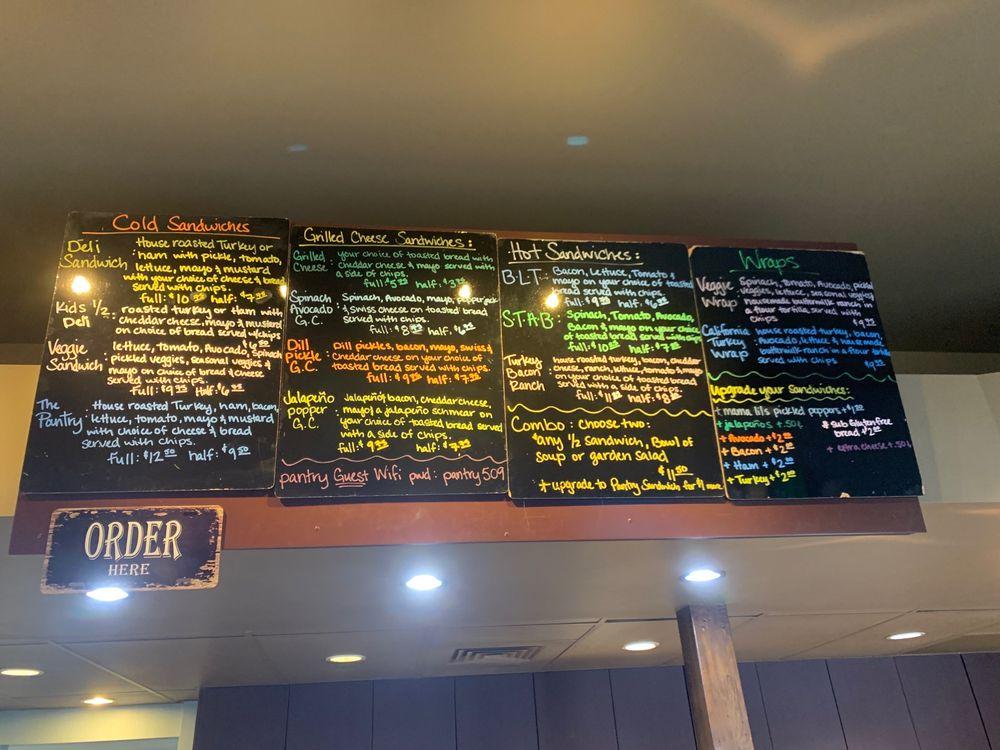 Cold Sandwiches
Deli Sandwich : House roasted Turkey or
ham with pickle, tomato,
lettuce, mayo & mustard
with your choice of cheese & bread
served with chips.
full: $10 half: $7
Kids 1/2 Deli : roasted turkey or Ham with
cheddar cheese, mayo & mustard
on choice of bread served w/chips
Veggie Sandwich : lettuce, tomato, Avocado, Spinach
pickled veggies, seasonal veggies &
mayo on choice of bread & cheese
served with chips.
full: $9 Half: $6
The Pantry : House roasted Turkey, ham, bacon,
lettuce, tomato, mayo & mustard
with choice of cheese & bread
served with chips.
full: $12 50 half: $9 50
Grilled Cheese Sandwiches :
Grilled Cheese : your choice of toasted bread with
cheddar cheese & mayo served with
a side of chips.
full $5 half: $3
Spinach Avocado G.C. : Spinach, Avocado, mayo, pepperjack
& swiss cheese on toasted bread
served with chips.
full: $8 half: $6
Dill pickle G.C. : Dill pickles, bacon, mayo, swiss &
cheddar cheese on your choice of
toasted bread served with chips.
full: $9 half: $7
Jalapeño popper G.C. : Jalapeño, bacon, cheddar cheese,
mayo & jalapeño schmear on
your choice of toasted bread served
with a side of chips.
full: $9 half: $7
pantry Guest Wifi pwd: pantry509
Hot Sandwiches :
B.L.T. : Bacon, Lettuce, Tomato &
mayo on your choice of toasted
bread served with chips.
full: $9 half: $6
S.T.A.B. : Spinach, Tomato, Avocado,
Bacon & mayo on your choice
of toasted bread served with chips
full: $10 half: $7
Turkey Bacon Ranch : house roasted turkey, bacon, cheddar
cheese, ranch, lettuce, tomato & mayo
on your choice of toasted bread
served with a side of chips.
full: $11 half: $8
Combo : choose two:
*any 1/2 Sandwich, Bowl of
soup or garden salad
$11 50
+ upgrade to Pantry Sandwich for $1 more
Wraps
Veggie Wrap : Spinach, Tomato, Avocado, pickled
veggies, lettuce, seasonal veggies
housemade buttermilk ranch in
a flour tortilla served with
chips
California Turkey Wrap : house roasted turkey, bacon,
Avocado, lettuce & housemade
buttermilk ranch in a flour tortilla
served with chips
Upgrade your Sandwiches:
+ mama lil's pickled peppers + $1
+ jalapeños + .50¢
+ Avocado + $2
+ Bacon + $2
+ Ham + $2
+ Turkey + $2
* sub Gluten free
bread $2
+ extra cheese + .50¢
ORDER
HERE